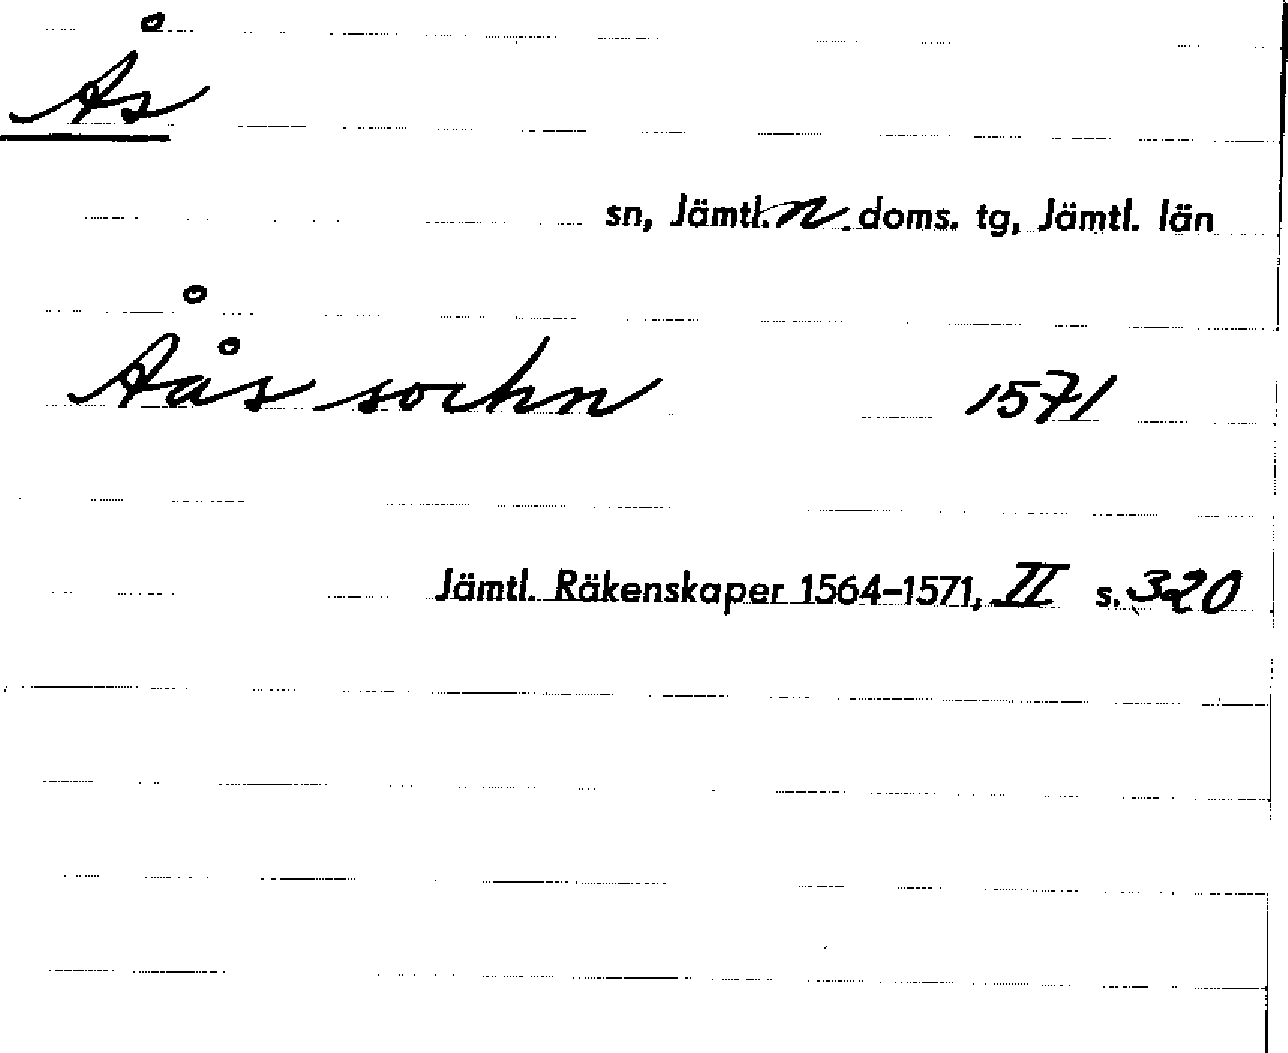 Ås
sn, Jämtl. n. doms. tg, Jämtl. län
Åås sochn 1571
Jämtl. Räkenskaper 1564–1571, II s. 320